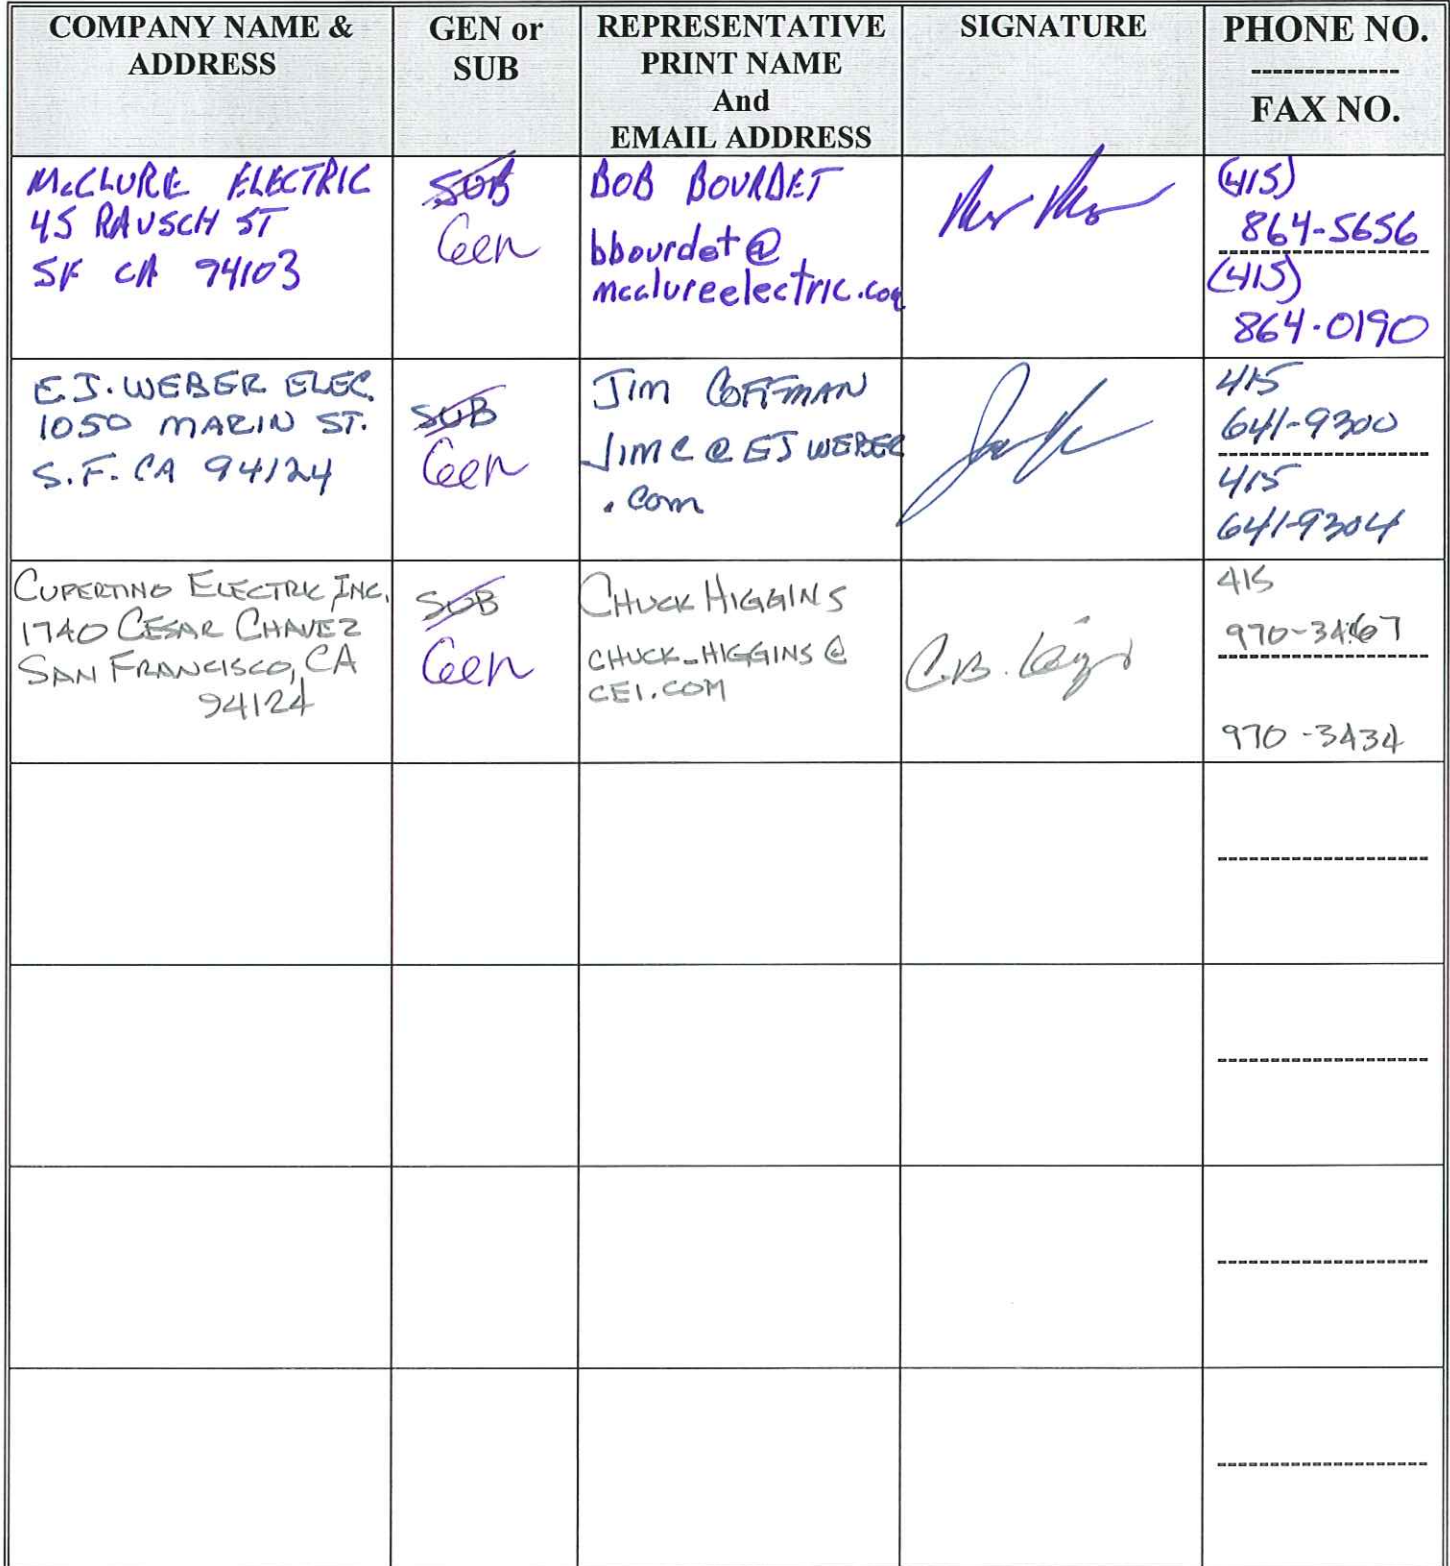 COMPANY NAME &
ADDRESS
GEN or
SUB
REPRESENTATIVE
PRINT NAME
And
EMAIL ADDRESS
SIGNATURE
PHONE NO.
--------------
FAX NO.
McCLURE ELECTRIC
45 RAUSCH ST
SF CA 94103
SUB
Gen
BOB BOURDET
bbourdet@
mcclureelectric.com
(415)
864-5656
(415)
864-0190
E.J. WEBER ELEC.
1050 MARIN ST.
S.F. CA 94124
SUB
Gen
JIM COFFMAN
JIMC@EJWEBER
.com
415
641-9300
415
641-9304
CUPERTINO ELECTRIC INC.
1740 CESAR CHAVEZ
SAN FRANCISCO, CA
94124
SUB
Gen
CHUCK HIGGINS
CHUCK_HIGGINS@
CEI.COM
C.B.
415
970-3467
970-3434